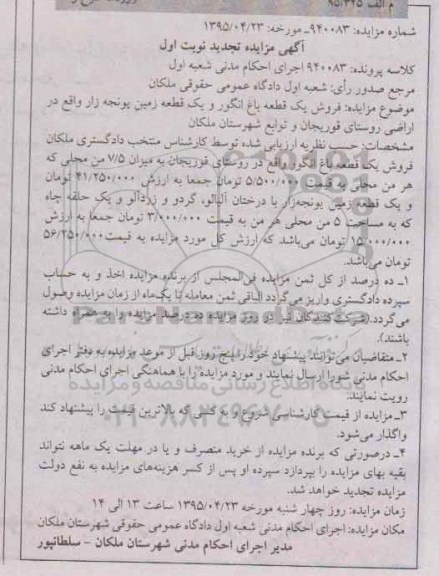 م الف ۹۵/۳۴۵
شماره مزایده: ۹۴۰۰۸۳ـ مورخه: ۱۳۹۵/۰۴/۲۳
آگهی مزایده تجدید نوبت اول
کلاسه پرونده: ۹۴۰۰۸۳ اجرای احکام مدنی شعبه اول
مرجع صدور رأی: شعبه اول دادگاه عمومی حقوقی ملکان
موضوع مزایده: فروش یک قطعه باغ انگور و یک قطعه زمین یونجه زار واقع در
اراضی روستای قوریجان و توابع شهرستان ملکان
مشخصات: حسب نظریه ارزیابی شده توسط کارشناس منتخب دادگستری ملکان
فروش یک قطعه باغ انگور واقع در روستای قوریجان به میزان ۷/۵ من محلی که
هر من محلی به قیمت ۵/۵۰۰/۰۰۰ تومان جمعا به ارزش ۴۱/۲۵۰/۰۰۰ تومان
و یک قطعه زمین یونجه‌زار با درختان آلبالو، گردو و زردآلو و یک حلقه چاه
که به مساحت ۵ من محلی هر من به قیمت ۳/۰۰۰/۰۰۰ تومان جمعا به ارزش
۱۵/۰۰۰/۰۰۰ تومان می‌باشد که ارزش کل مورد مزایده به قیمت ۵۶/۲۵۰/۰۰۰
تومان می‌باشد.
۱ـ ده درصد از کل ثمن مزایده فی‌المجلس از برنده مزایده اخذ و به حساب
سپرده دادگستری واریز می‌گردد الباقی ثمن معامله تا یک‌ماه از زمان مزایده وصول
می‌گردد.(شرکت‌کنندگان نیز در روز مزایده ده درصد مزایده را به همراه داشته
باشند).
۲ـ متقاضیان می‌توانند پیشنهاد خود را پنج روز قبل از موعد مزایده به دفتر اجرای
احکام مدنی شورا ارسال نمایند و مورد مزایده را با هماهنگی اجرای احکام مدنی
رویت نمایند.
۳ـ مزایده از قیمت کارشناسی شروع و به کسی که بالاترین قیمت را پیشنهاد کند
واگذار می‌شود.
۴ـ درصورتی که برنده مزایده از خرید منصرف و یا در مهلت یک ماهه نتواند
بقیه بهای مزایده را بپردازد سپرده او پس از کسر هزینه‌های مزایده به نفع دولت
مزایده تجدید خواهد شد.
زمان مزایده: روز چهار شنبه مورخه ۱۳۹۵/۰۴/۲۳ ساعت ۱۳ الی ۱۴
مکان مزایده: اجرای احکام مدنی شعبه اول دادگاه عمومی حقوقی شهرستان ملکان
مدیر اجرای احکام مدنی شهرستان ملکان - سلطانپور
ParsNamadData
پایگاه اطلاع رسانی مناقصه و مزایده
۰۲۱-۸۸۳۴۹۶۷۰-۵